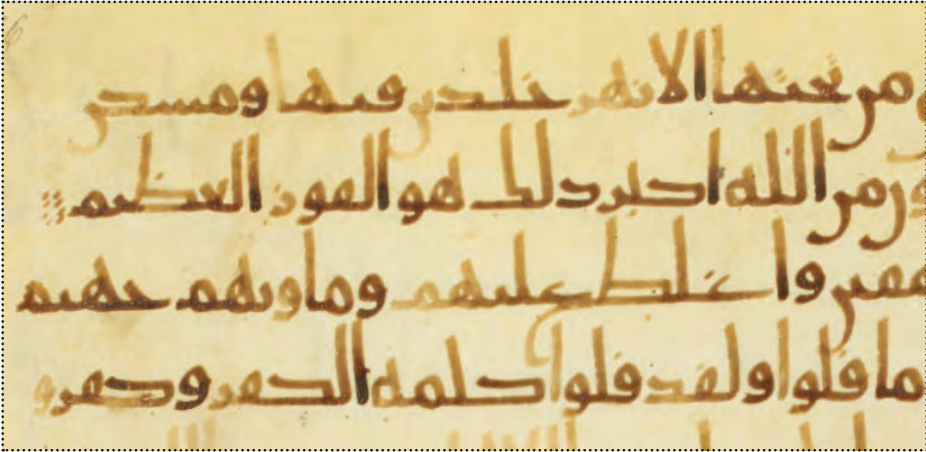 من تحتها الانهر خلدين فيها ومسكن
ون من الله اكبر ذلك هو الفوز العظيم
فقين واغلظ عليهم وماويهم جهنم
ما قلوا ولقد قلوا كلمه الكفر وكفرو